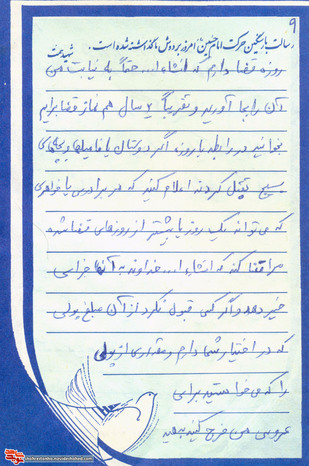 ۹
رسالت بازسنگین حرکت امام حسین(ع) امروز بر دوش ما گذاشته شده است. شهید همت
روزه قضا دارم که انشاءا... حتماً به نیابت من
آن را بجا آورید و تقریباً ۲ سال هم نماز قضا برایم
بخوانید در رابطه با روزه اگر دوستان یا فامیلها و بچه‌های
بسیج تقبل کردند اعلام کنید که هر برادری یا خواهری
که می‌تواند یک روز یا بیشتر از روزهای قضا شده
مرا قضا کند که انشاءا... خداوند به آنها جزای
خیر دهد و اگر کسی قبول نکرد از آن مبلغ پولی
که در اختیار شما دارم و مقداری از پولی
را که می‌خواستید برای
عروسی من خرج کنید بدهید